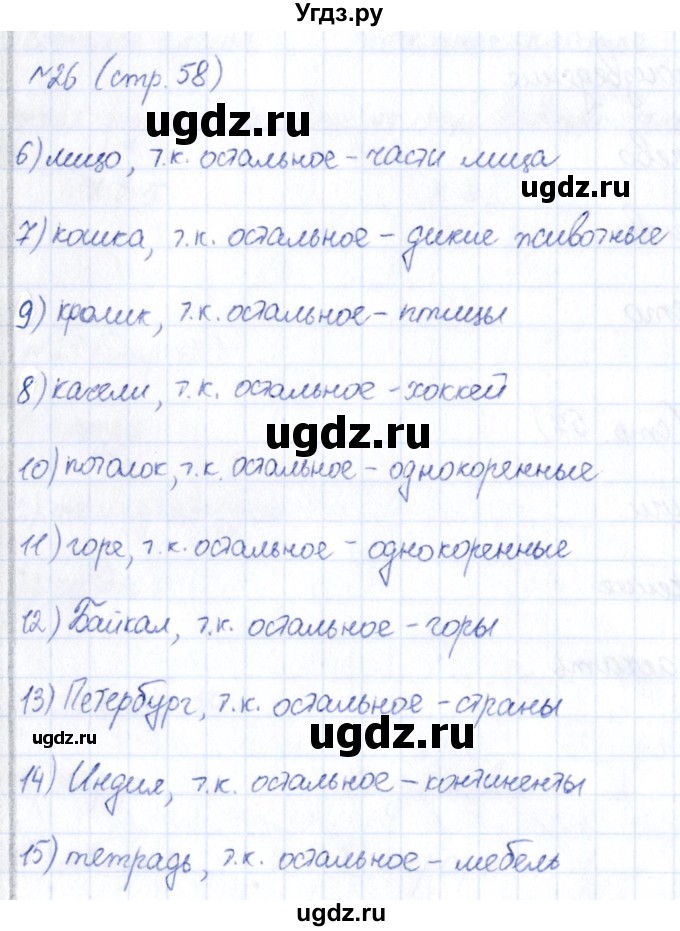 Угдз.ру
№26 (стр. 58)
ugdz.ru
6) лицо, т.к. остальное - части лица
ugdz.ru
7) кошка, т.к. остальное - дикие животные
9) кролик, т.к. остальное - птицы
8) качели, т.к. остальное - хоккей
ugdz.ru
10) потолок, т.к. остальное - однокоренные
11) горе, т.к. остальное - однокоренные
12) Байкал, т.к. остальное - горы
13) Петербург, т.к. остальное - страны
ugdz.ru ugdz.ru
14) Индия, т.к. остальное - континенты
15) тетрадь, т.к. остальное - мебель
ugdz.ru